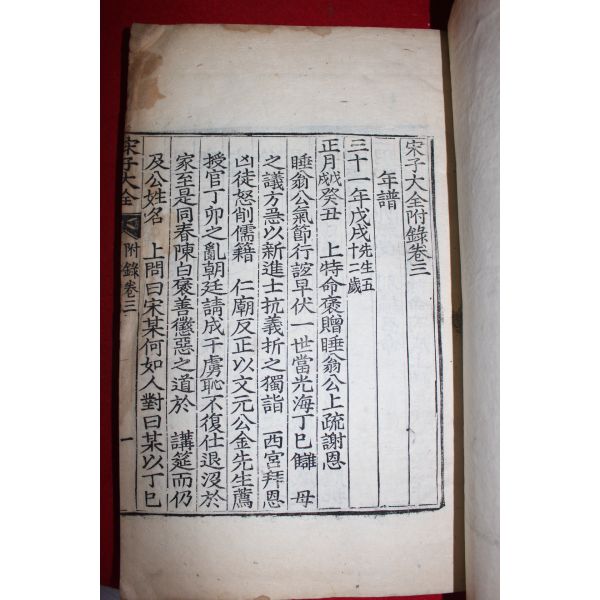 宋子大全附錄卷三
年譜
三十一年戊戌先生五十二歲
正月戊戌癸丑 上特命褒贈睡翁公上疏謝恩
睡翁公氣節行誼早伏一世當光海丁巳讎 母
之議方急以新進士抗義折之獨詣 西宮拜恩
凶徒怒削儒籍 仁廟反正以文元公金先生薦
授官丁卯之亂朝廷請成于虜恥不復仕退沒於
家至是同春陳白褒善懲惡之道於 講筵而仍
及公姓名 上問曰宋某何如人對曰某以丁巳
宋子大全 附錄卷三 一